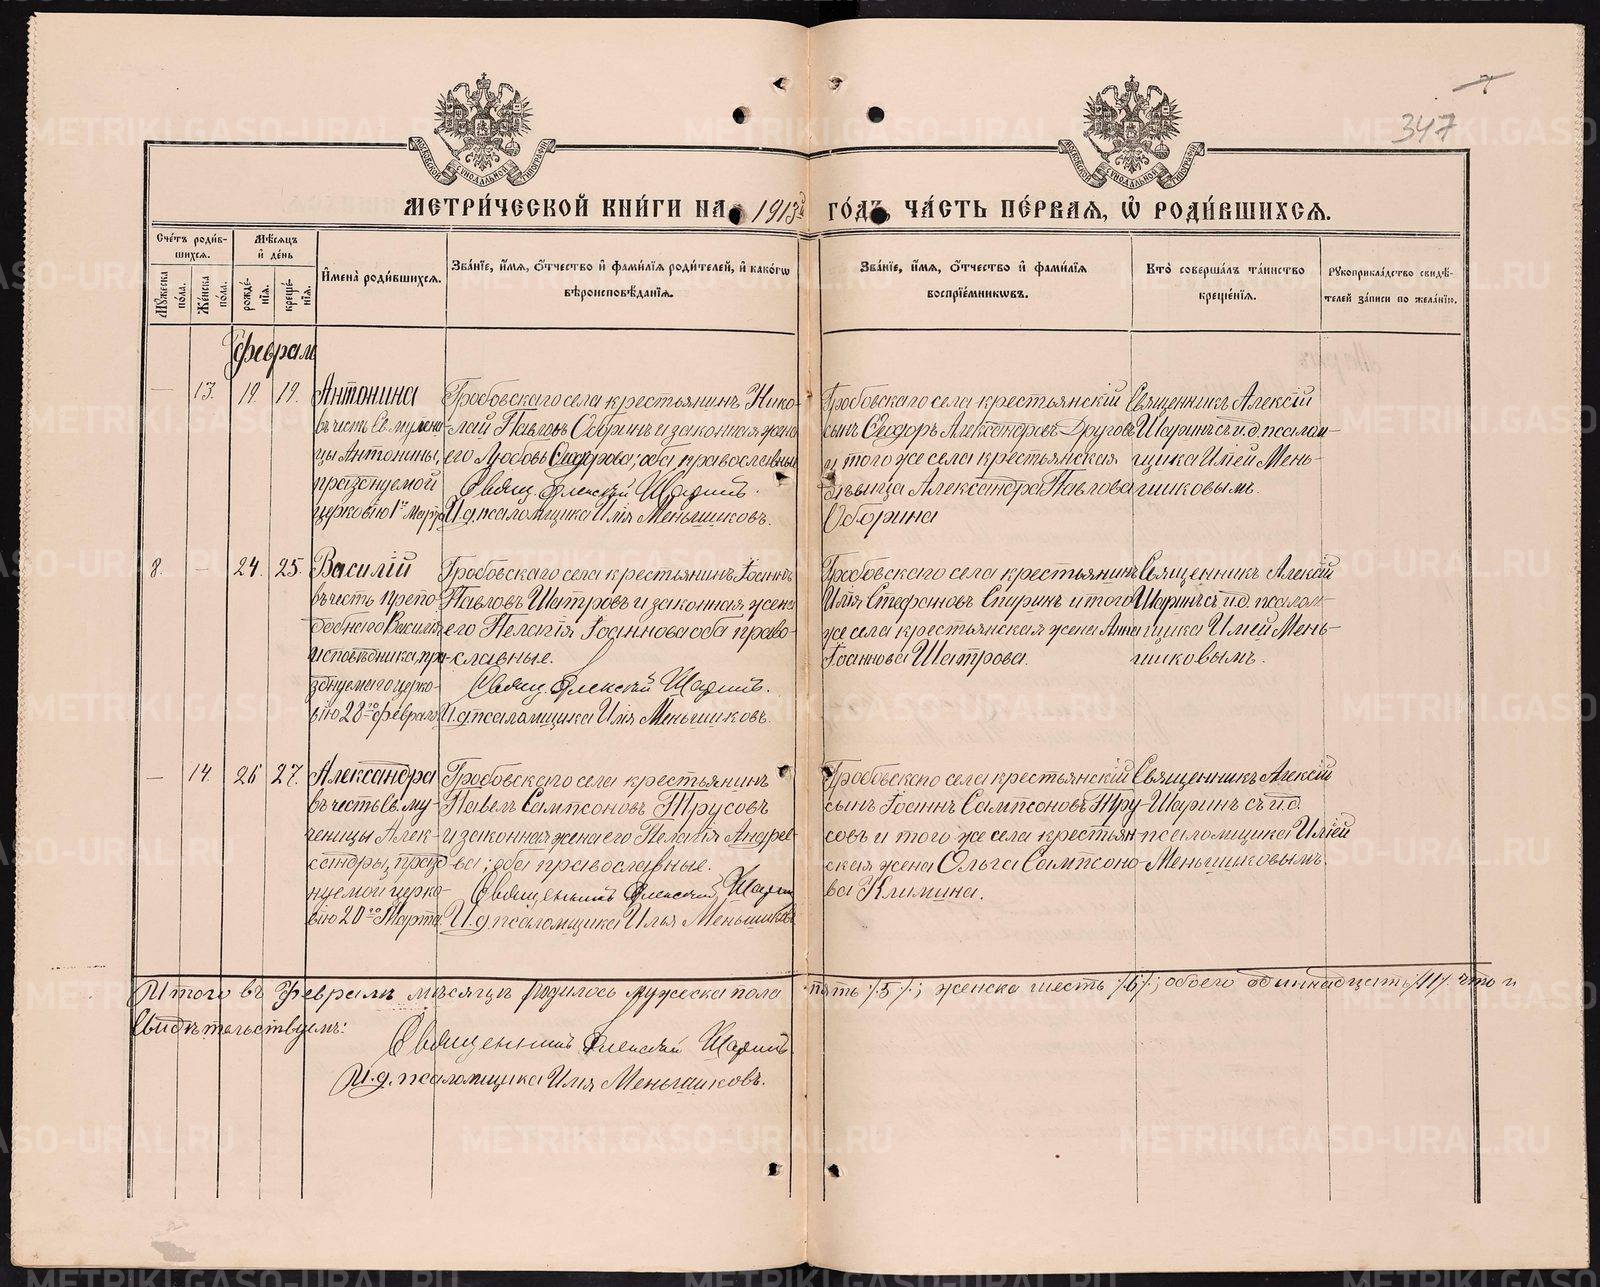 347
МЕТРИ́ЧЕСКОЙ КНИ́ГИ НА 1913й ГО́ДЪ, ЧА́СТЬ ПЕ́РВАЯ, Ѡ҆ РОДИ́ВШИХСѦ.
Сче́тъ роди́вшихсѧ.
Мꙋ́жеска пола.
Же́нска пола.
Мѣ́сѧцъ и҆ де́нь
рожде́нїѧ.
креще́нїѧ.
И҆мена̀ роди́вшихсѧ.
Зва́нїе, и҆́мѧ, ѻ҆́тчество и҆ фами́лїѧ роди́телей, и҆ како́гѡ вѣроисповѣ́данїѧ.
Зва́нїе, и҆́мѧ, ѻ҆́тчество и҆ фами́лїѧ воспрїе́мникѡвъ.
Кто̀ соверша́лъ та́инство креще́нїѧ.
Рꙋкоприкла́дство свидѣ́телей за́писи по жела́нїю.
Февраль
— 13. 19. 19.
Антонина
въ честь Св. мучени-
цы Антонины,
празднуемой
церковію 1го Марта
Гробовскаго села крестьянинъ Нико-
лай Павловъ Оборинъ и законная жена
его Любовь Сидорова; оба православные
Свящ. Алексій Шаринъ.
И.д. псаломщика Илія Меньшиковъ.
Гробовскаго села крестьянскій
сынъ Ѳеодоръ Александровъ Друговъ
и того же села крестьянская
дѣвица Александра Павлова
Оборина
Священникъ Алексій
Шаринъ съ и.д. псалом-
щика Иліей Мень-
шиковымъ.
8. — 24. 25.
Василій
въ честь препо-
добнаго Василія
исповѣдника, пра-
зднуемаго церко-
вію 28го февраля
Гробовскаго села крестьянинъ Іоаннъ
Павловъ Шатровъ и законная жена
его Пелагія Іоаннова оба право-
славные.
Свящ. Алексій Шаринъ.
И.д. псаломщика Илія Меньшиковъ.
Гробовскаго села крестьянинъ
Илія Стефановъ Спиринъ и того
же села крестьянская жена Анна
Іоаннова Шатрова.
Священникъ Алексій
Шаринъ съ и.д. псалом-
щика Иліей Мень-
шиковымъ.
— 14. 26 27.
Александра
въ честь Св. му-
ченицы Алек-
сандры, празд-
нуемой церко-
вію 20го Марта
Гробовскаго села крестьянинъ
Павелъ Сампсоновъ Трусовъ
и законная жена его Пелагія Андрее-
ва; оба православные.
Священникъ Алексій Шаринъ
И.д. псаломщика Илья Меньшиковъ
Гробовскаго села крестьянскій
сынъ Іоаннъ Сампсоновъ Тру-
совъ и того же села крестьян-
ская жена Ольга Сампсоно-
ва Климина.
Священникъ Алексій
Шаринъ съ и.д.
псаломщика Иліей
Меньшиковымъ.
Итого въ Февралѣ мѣсяцѣ родилось мужеска пола пять /5/; женска шесть /6/; обоего одиннадцать /11/ что и
свидѣтельствуемъ:
Священникъ Алексій Шаринъ
И.д. псаломщика Илія Меньшиковъ.
METRIKI.GASO-URAL.RU